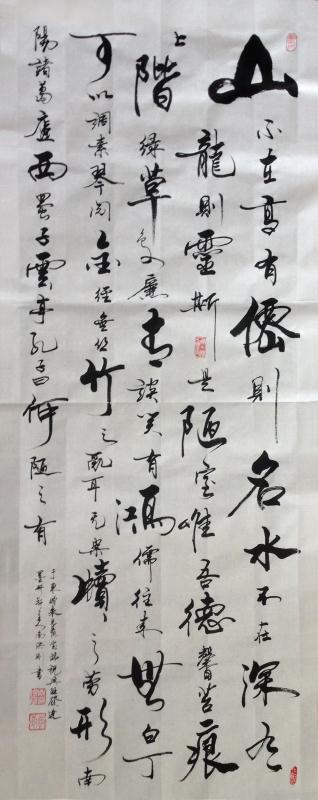 山不在高有僊則名水不在深有
龍則靈斯是陋室唯吾德馨苔痕
上階緑草色入廉青談笑有鴻儒往来無白丁
可以調素琴阅金經無丝竹之亂耳无案牘之劳形南
陽諸葛廬西蜀子雲亭孔子曰何陋之有